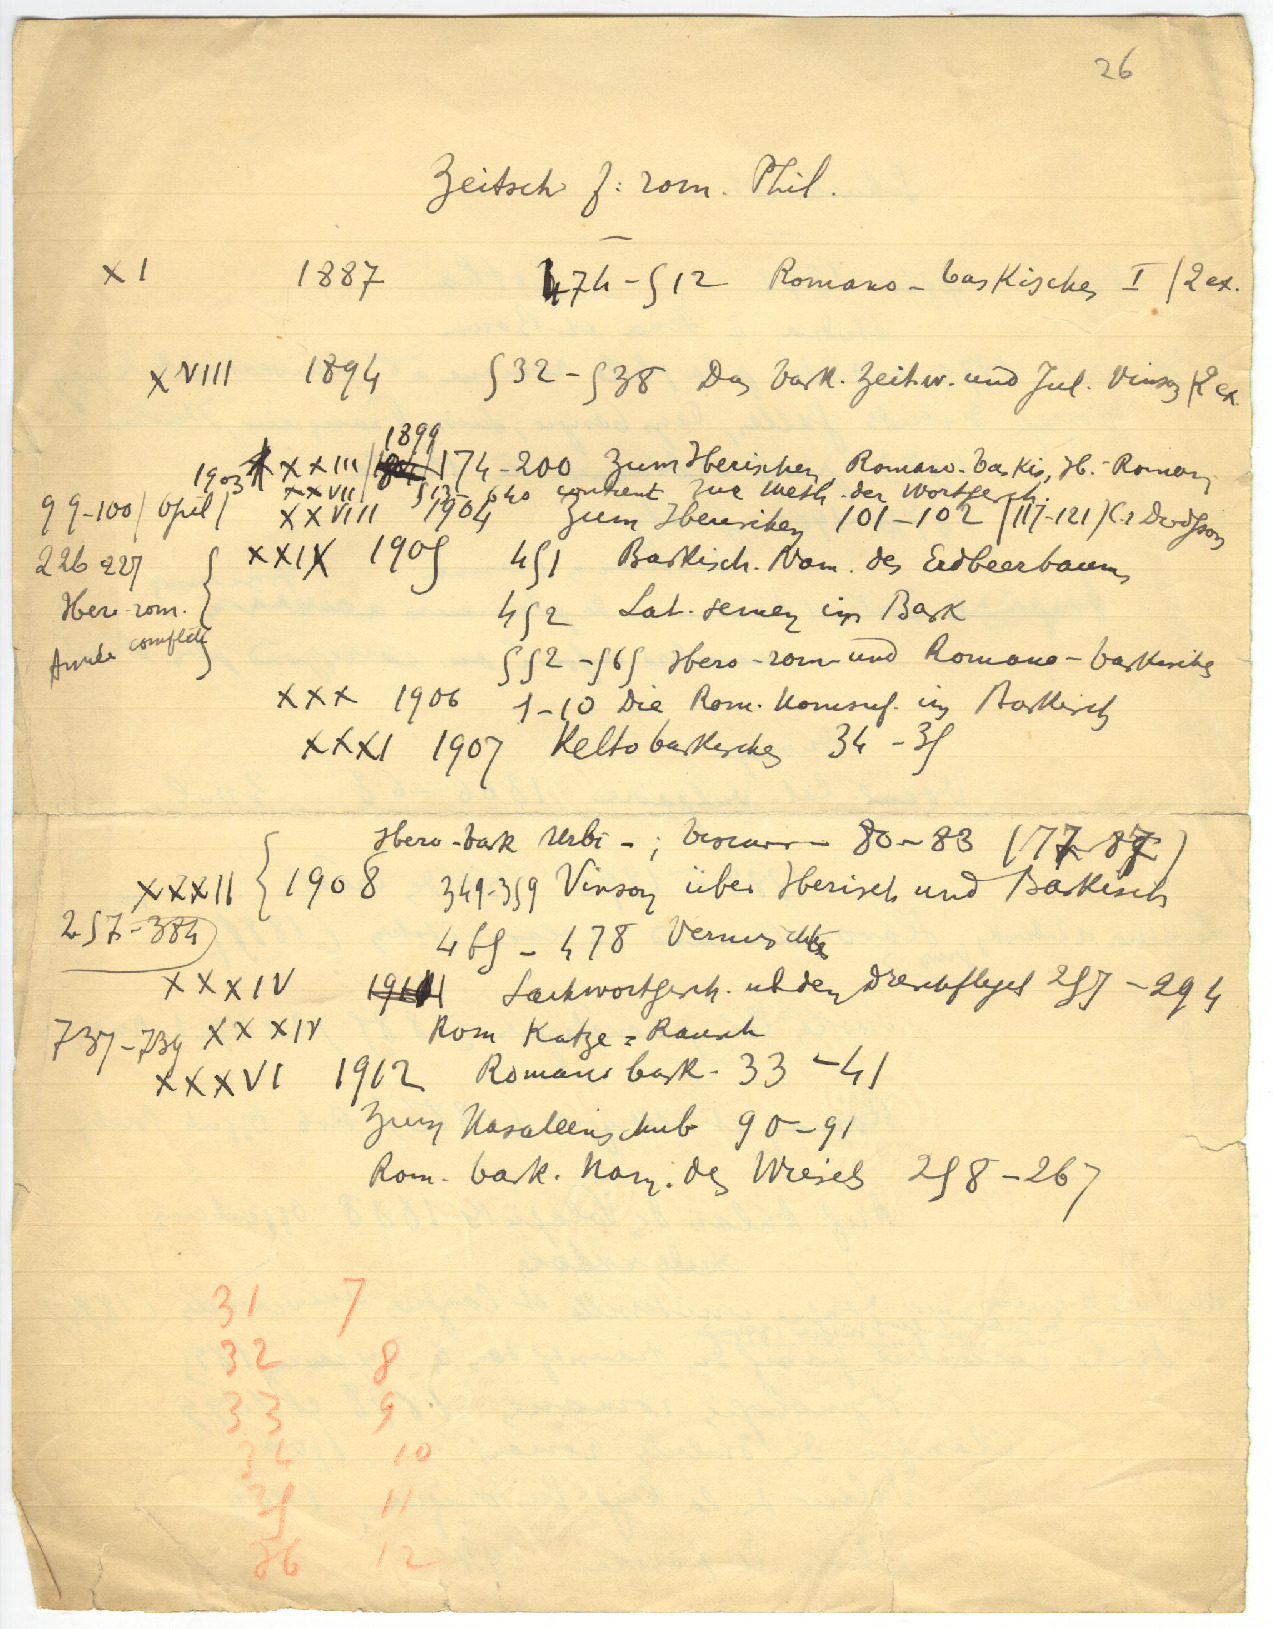 26
Zeitsch f: rom. Phil.
XI 1887 474-512 Romano-baskisches I (2 ex.
XVIII 1894 532-538 Das bask. Zeitw. und Jul. Vinson (2 ex.
1899
XXIII 174-200 Zum Iberischen Romano-baskis, Ib.-Roman
1903 XXVII 513-640 contient zur Meth. der Wortgesch.
99-100 / April / XXVIII 1904 Zum Iberischen 101-102 (117-121)
226 227 XXIX 1905 451 Baskisch. Nam. des Erdbeerbaums
Ibero-rom. 452 Lat. semen im Bask
Année complète 552-565 Ibero-rom und Romano-baskisches
XXX 1906 1-10 Die Rom. Nomsuf. im Baskisch
XXXI 1907 Keltobaskisches 34-35
Ibero-bask Urbi-; 80-83 (77-87)
XXXII 1908 349-359 Vinson über Iberisch und Baskisch
257-384 465-478 Vermischtes
XXXIV Sachwortgesch. üb den Dreschflegel 257-294
737-739 XXXIV Rom Katze = Rausch
XXXVI 1912 Romano bask. 33-41
Zum Nasaleinschub 90-91
Rom. bask. Nam. des Wiesels 258-267
31 7
32 8
33 9
34 10
35 11
36 12